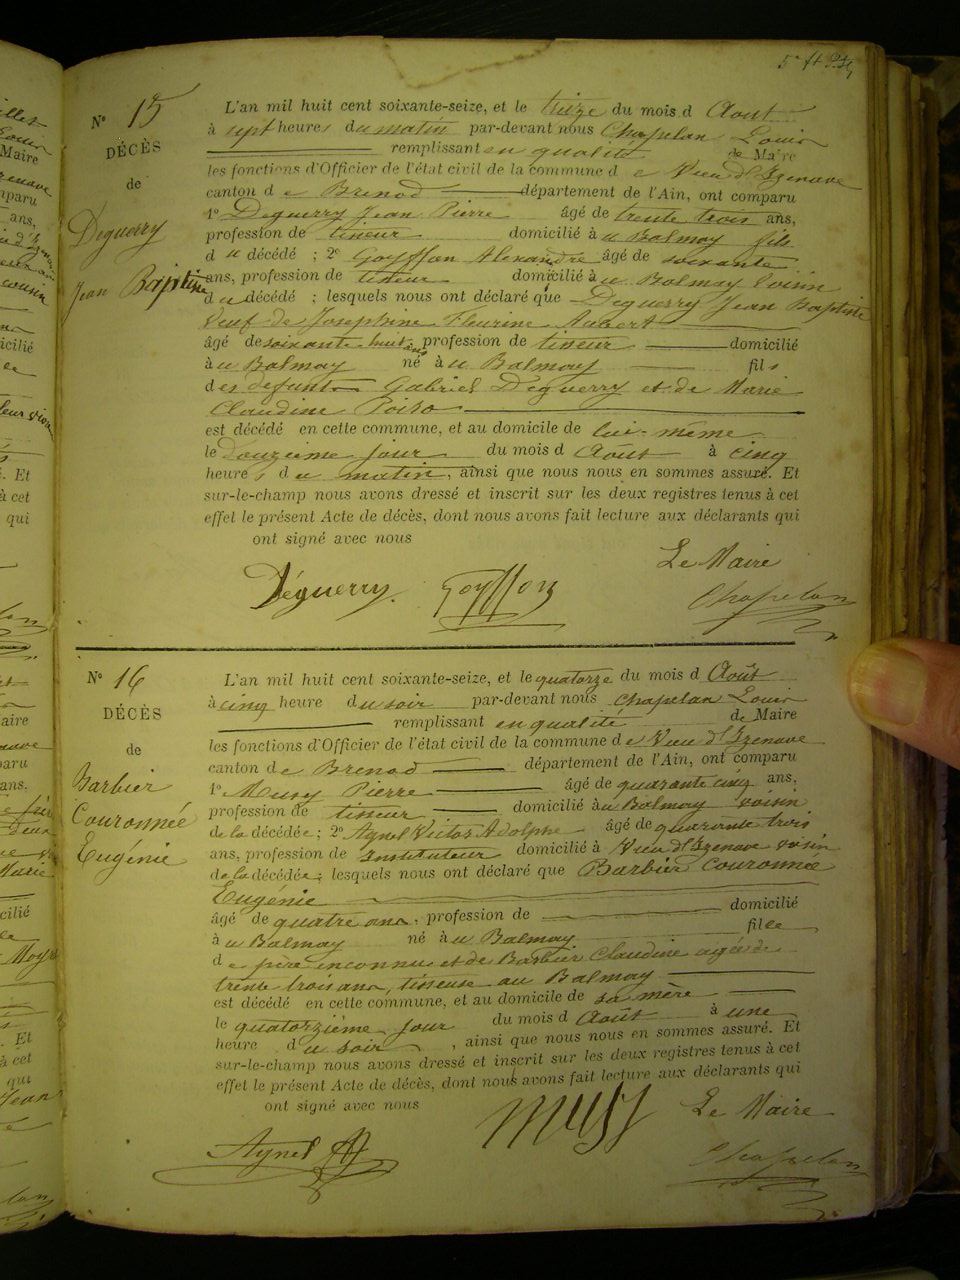 5e ft
N° 15
DÉCÈS
de
Deguerry
Jean Baptiste
L'an mil huit cent soixante-seize, et le treize du mois d Aout
à sept heures du matin par-devant nous Chapelan Louis
remplissant en qualité de Maire
les fonctions d'Officier de l'état civil de la commune d e Vieu d'Izenave
canton d e Brenod département de l'Ain, ont comparu
1° Deguerry Jean Pierre âgé de trente trois ans,
profession de tisseur domicilié à u Balmay fils
d u décédé ; 2° Goyffon Alexandre âgé de soixante
ans, profession de tisseur domicilié à u Balmay voisin
d u décédé ; lesquels nous ont déclaré que Deguerry Jean Baptiste
veuf de Josephine Fleurine Aubert
âgé de soixante huit ans profession de tisseur domicilié
à u Balmay né à u Balmay fils
d es defunts Gabriel Deguerry et de Marie
Claudine Poizo
est décédé en cette commune, et au domicile de lui-même
le douzième jour du mois d Août à cinq
heures d u matin, ainsi que nous nous en sommes assuré. Et
sur-le-champ nous avons dressé et inscrit sur les deux registres tenus à cet
effet le présent Acte de décès, dont nous avons fait lecture aux déclarants qui
ont signé avec nous
Le Maire
Déguerry Goyffon Chapelan
N° 16
DÉCÈS
de
Barbier
Couronnée
Eugénie
L'an mil huit cent soixante-seize, et le quatorze du mois d Août
à cinq heure du soir par-devant nous Chapelan Louis
remplissant en qualité de Maire
les fonctions d'Officier de l'état civil de la commune d e Vieu d'Izenave
canton d e Brenod département de l'Ain, ont comparu
1° Musy Pierre âgé de quarante cinq ans,
profession de tisseur domicilié à u Balmay voisin
de la décédée ; 2° Aynel Victor Adolphe âgé de quarante trois
ans, profession de Instituteur domicilié à Vieu d'Izenave voisin
de la décédée ; lesquels nous ont déclaré que Barbier Couronnée
Eugénie
âgé de quatre ans, profession de domicilié
à u Balmay né à u Balmay fille
d e père inconnu et de Barbier Claudine agée de
trente trois ans, tisseuse au Balmay
est décédé en cette commune, et au domicile de sa mère
le quatorzième jour du mois d Août à une
heure d u soir, ainsi que nous nous en sommes assuré. Et
sur-le-champ nous avons dressé et inscrit sur les deux registres tenus à cet
effet le présent Acte de décès, dont nous avons fait lecture aux déclarants qui
ont signé avec nous
Musy Le Maire
Aynel Chapelan